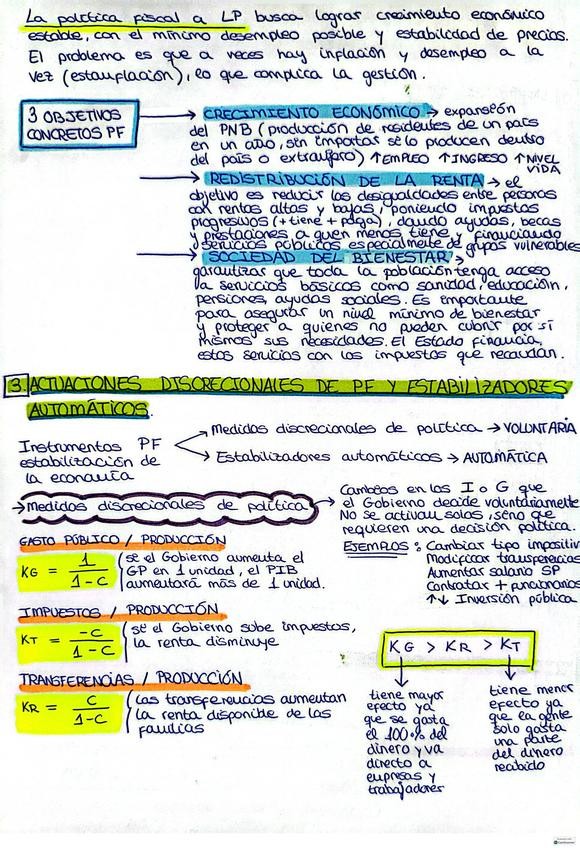 La política fiscal a LP busca lograr crecimiento económico
estable, con el mínimo desempleo posible y estabilidad de precios.
El problema es que a veces hay inflación y desempleo a la
vez (estanflación), lo que complica la gestión.
3 OBJETIVOS
CONCRETOS PF
CRECIMIENTO ECONÓMICO → expansión
del PNB (producción de residentes de un país
en un año, sin importar si lo producen dentro
del país o extranjero) ↑EMPLEO ↑INGRESO ↑NIVEL
VIDA
REDISTRIBUCIÓN DE LA RENTA → el
objetivo es reducir las desigualdades entre personas
con rentas altas y bajas, poniendo impuestos
progresivos (+tiene + paga), dando ayudas, becas
y prestaciones a quien menos tiene y financiando
servicios públicos especialmente de grupos vulnerables
SOCIEDAD DEL BIENESTAR →
garantizar que toda la población tenga acceso
a servicios básicos como sanidad, educación,
pensiones, ayudas sociales. Es importante
para asegurar un nivel mínimo de bienestar
y proteger a quienes no pueden cubrir por sí
mismos sus necesidades. El Estado financia,
estos servicios con los impuestos que recaudan.
3. ACTUACIONES DISCRECIONALES DE PF Y ESTABILIZADORES
AUTOMÁTICOS.
Instrumentos PF
estabilización de
la economía
Medidas discrecionales de política → VOLUNTARIA
Estabilizadores automáticos → AUTOMÁTICA
→ Medidas discrecionales de política
→ Cambios en los I o G que
el Gobierno decide voluntariamente
No se activan solos, sino que
requieren una decisión política.
EJEMPLOS: Cambiar tipo impositiv
Modificar transferencias
Aumentar salario SP
Contratar + funcionarios
↑↓ Inversión pública
GASTO PÚBLICO / PRODUCCIÓN
KG = 1 / 1-C
si el Gobierno aumenta el
GP en 1 unidad, el PIB
aumentará más de 1 unidad.
IMPUESTOS / PRODUCCIÓN
KT = -C / 1-C
si el Gobierno sube impuestos,
la renta disminuye
TRANSFERENCIAS / PRODUCCIÓN
KR = C / 1-C
las transferencias aumentan
la renta disponible de las
familias
KG > KR > KT
tiene mayor
efecto ya
que se gasta
el 100% del
dinero y va
directo a
empresas y
trabajadores
tiene menor
efecto ya
que la gente
solo gasta
una parte
del dinero
recibido